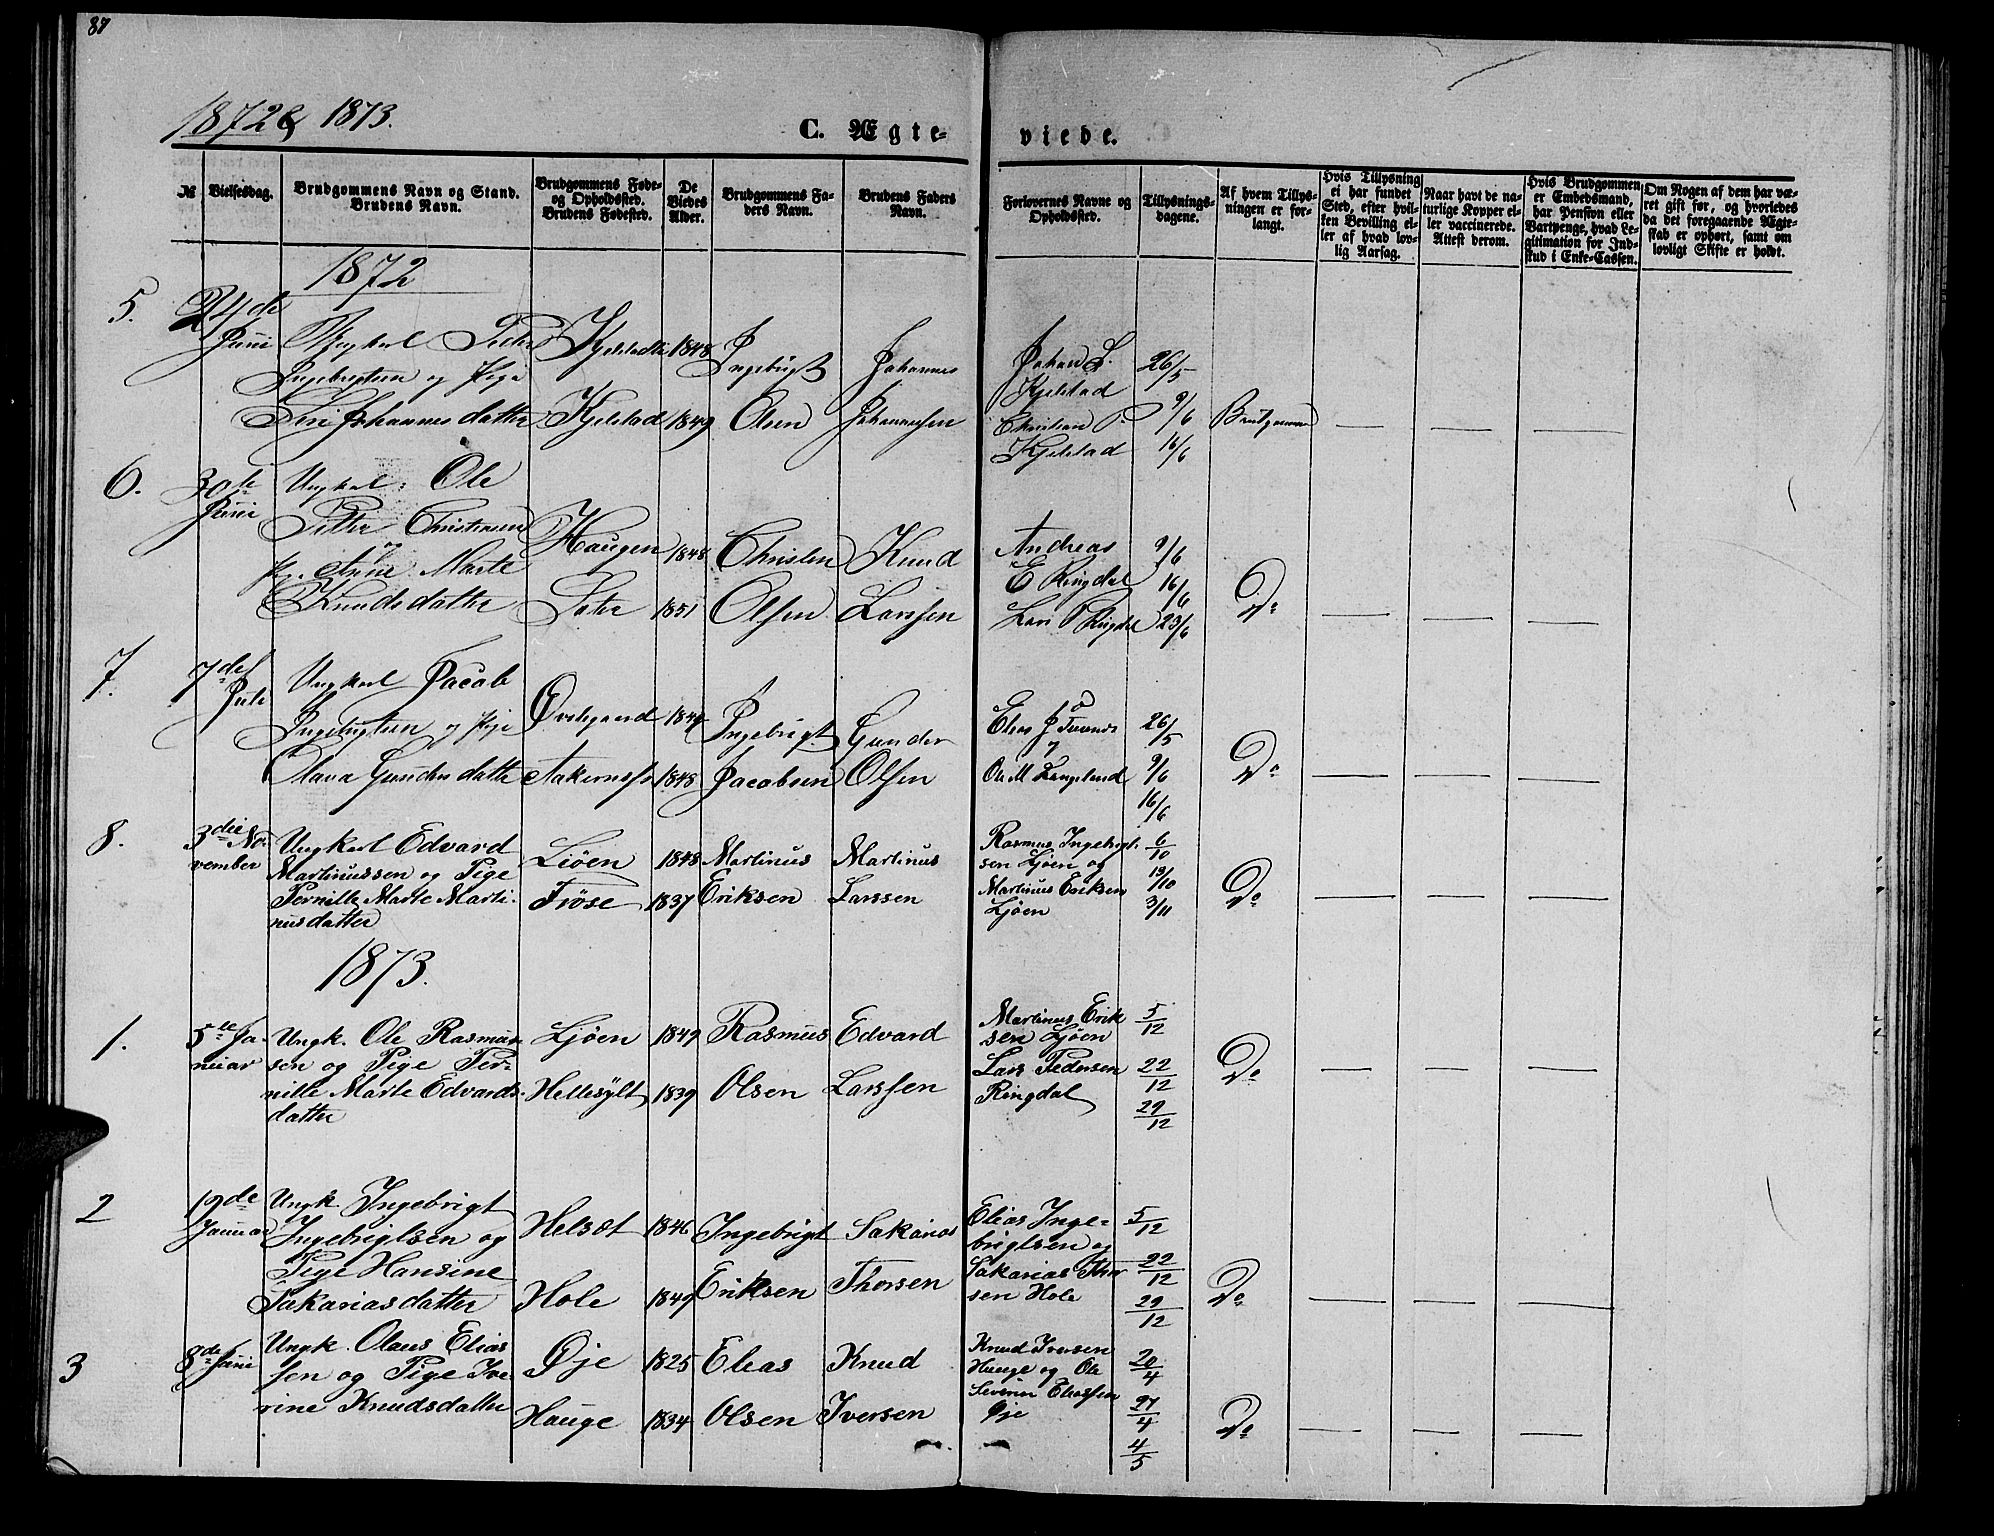 87
1872 & 1873.
C. Ægte-
viede.
№
Vielsesdag.
Brudgommens Navn og Stand.
Brudens Navn.
Brudgommens Føde-
og Opholdssted.
Brudens Fødested.
De
Viedes
Alder.
Brudgommens Fa-
ders Navn.
Brudens Faders
Navn.
Forlovernes Navne og
Opholdssted.
Tillysnings-
dagene.
Af hvem Tillys-
ningen er for-
langt.
Hvis Tillysning
ei har fundet
Sted, efter hvil-
ken Bevilling el-
ler af hvad lov-
lig Aarsag.
Naar havt de na-
turlige Kopper el-
ler vaccinerede.
Attest derom.
Hvis Brudgommen
er Embedsmand,
har Pension eller
Vartpenge, hvad Le-
gitimation for Ind-
skud i Enke-Cassen.
Om Nogen af dem har væ-
ret gift før, og hvorledes
da det foregaaende Ægte-
skab er ophørt, samt om
lovligt Skifte er holdt.
1872
5.
24de
Juni
Ungkarl Peter
Ingebrigtsen og Pige
Johannesdatter
Kjelstadli
Kjelstad
1848
1849
Ingebrigt
Olsen
Johannes
Johannessen
Johan L.
Kjelstad
Christian P.
Kjelstad
26/5
9/6
16/6
Brudgommen
6.
30te
Juni
Ungkarl Ole
Petter Christensen
og
Pig. Anne Marte
Knudsdatter
Haugen
Sæter
1848
1851
Christen
Olsen
Knud
Larssen
Andreas
E Ringdal
Lars P Ringdal
9/6
16/6
23/6
Do
7.
7de
Juli
Ungkarl Jacob
Ingebrigtsen og Pige
Olava Gundersdatter
Øvstegaard
1849
1848
Ingebrigt
Jacobsen
Gunder
Olsen
Elias J
og
Ole M Langeland
26/5
9/6
16/6
Do
8.
3die No-
vember
Ungkarl Edvard
Martinussen og Pige
Pernille Marte Marti-
nusdatter
Liøen
Frøse
1848
1837
Martinus
Eriksen
Martinus
Larssen
Rasmus Ingebrigt-
sen Ljøen og
Martinus Eriksen
Ljøen
6/10
13/10
3/11
Do
1873.
1.
5te Ja-
nuar
Ungk. Ole Rasmus-
sen og Pige Per-
nille Marte Edvards-
datter
Ljøen
Hellesylt
1849
1839
Rasmus
Olsen
Edvard
Larssen
Martinus Erik
sen Ljøen
Lars Pedersen
Ringdal
5/12
22/12
29/12
Do
2
19de
Januar
Ungk Ingebrigt
Ingebrigtsen og
Pige Hansine
Sakariasdatter
Helsæt
Hole
1846
1849
Ingebrigt
Eriksen
Sakarias
Thorsen
Elias Inge-
brigtsen og
Sakarias Thor
sen Hole
5/12
22/12
29/12
Do
3
8de Juni
Ungk. Olaus Elias
sen og Pige Ive
rine Knudsdatter
Øje
Hauge
1825
1834
Elias
Olsen
Knud
Iversen
Knud Iversen
Hauge og Ole
Severin Eliassen
Øje
20/4
27/4
4/5
Do